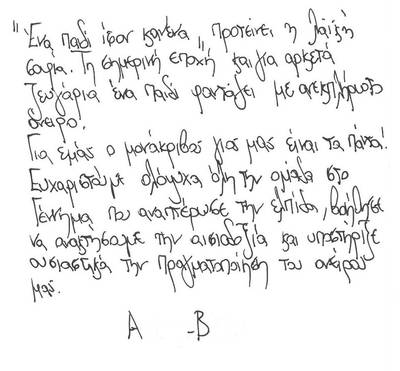 "Ένα παιδί ίσον κανένα", προτείνει η λαϊκή
σοφία. Τη σημερινή εποχή και για αρκετά
ζευγάρια ένα παιδί φαντάζει με ανεκπλήρωτο
όνειρο!
Για εμάς ο μονάκριβος γιος μας είναι τα πάντα!
Ευχαριστούμε ολόψυχα όλη την ομάδα στο
Γέννημα που αναπτέρωσε την ελπίδα, βοήθησε
να ανακτήσουμε την αισιοδοξία και υποστήριξε
ουσιαστικά την πραγματοποίηση του ονείρου
μας.
Α - Β